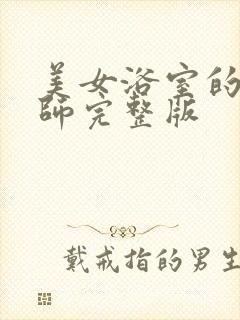 美女浴室的
师完整版
戴戒指的男生